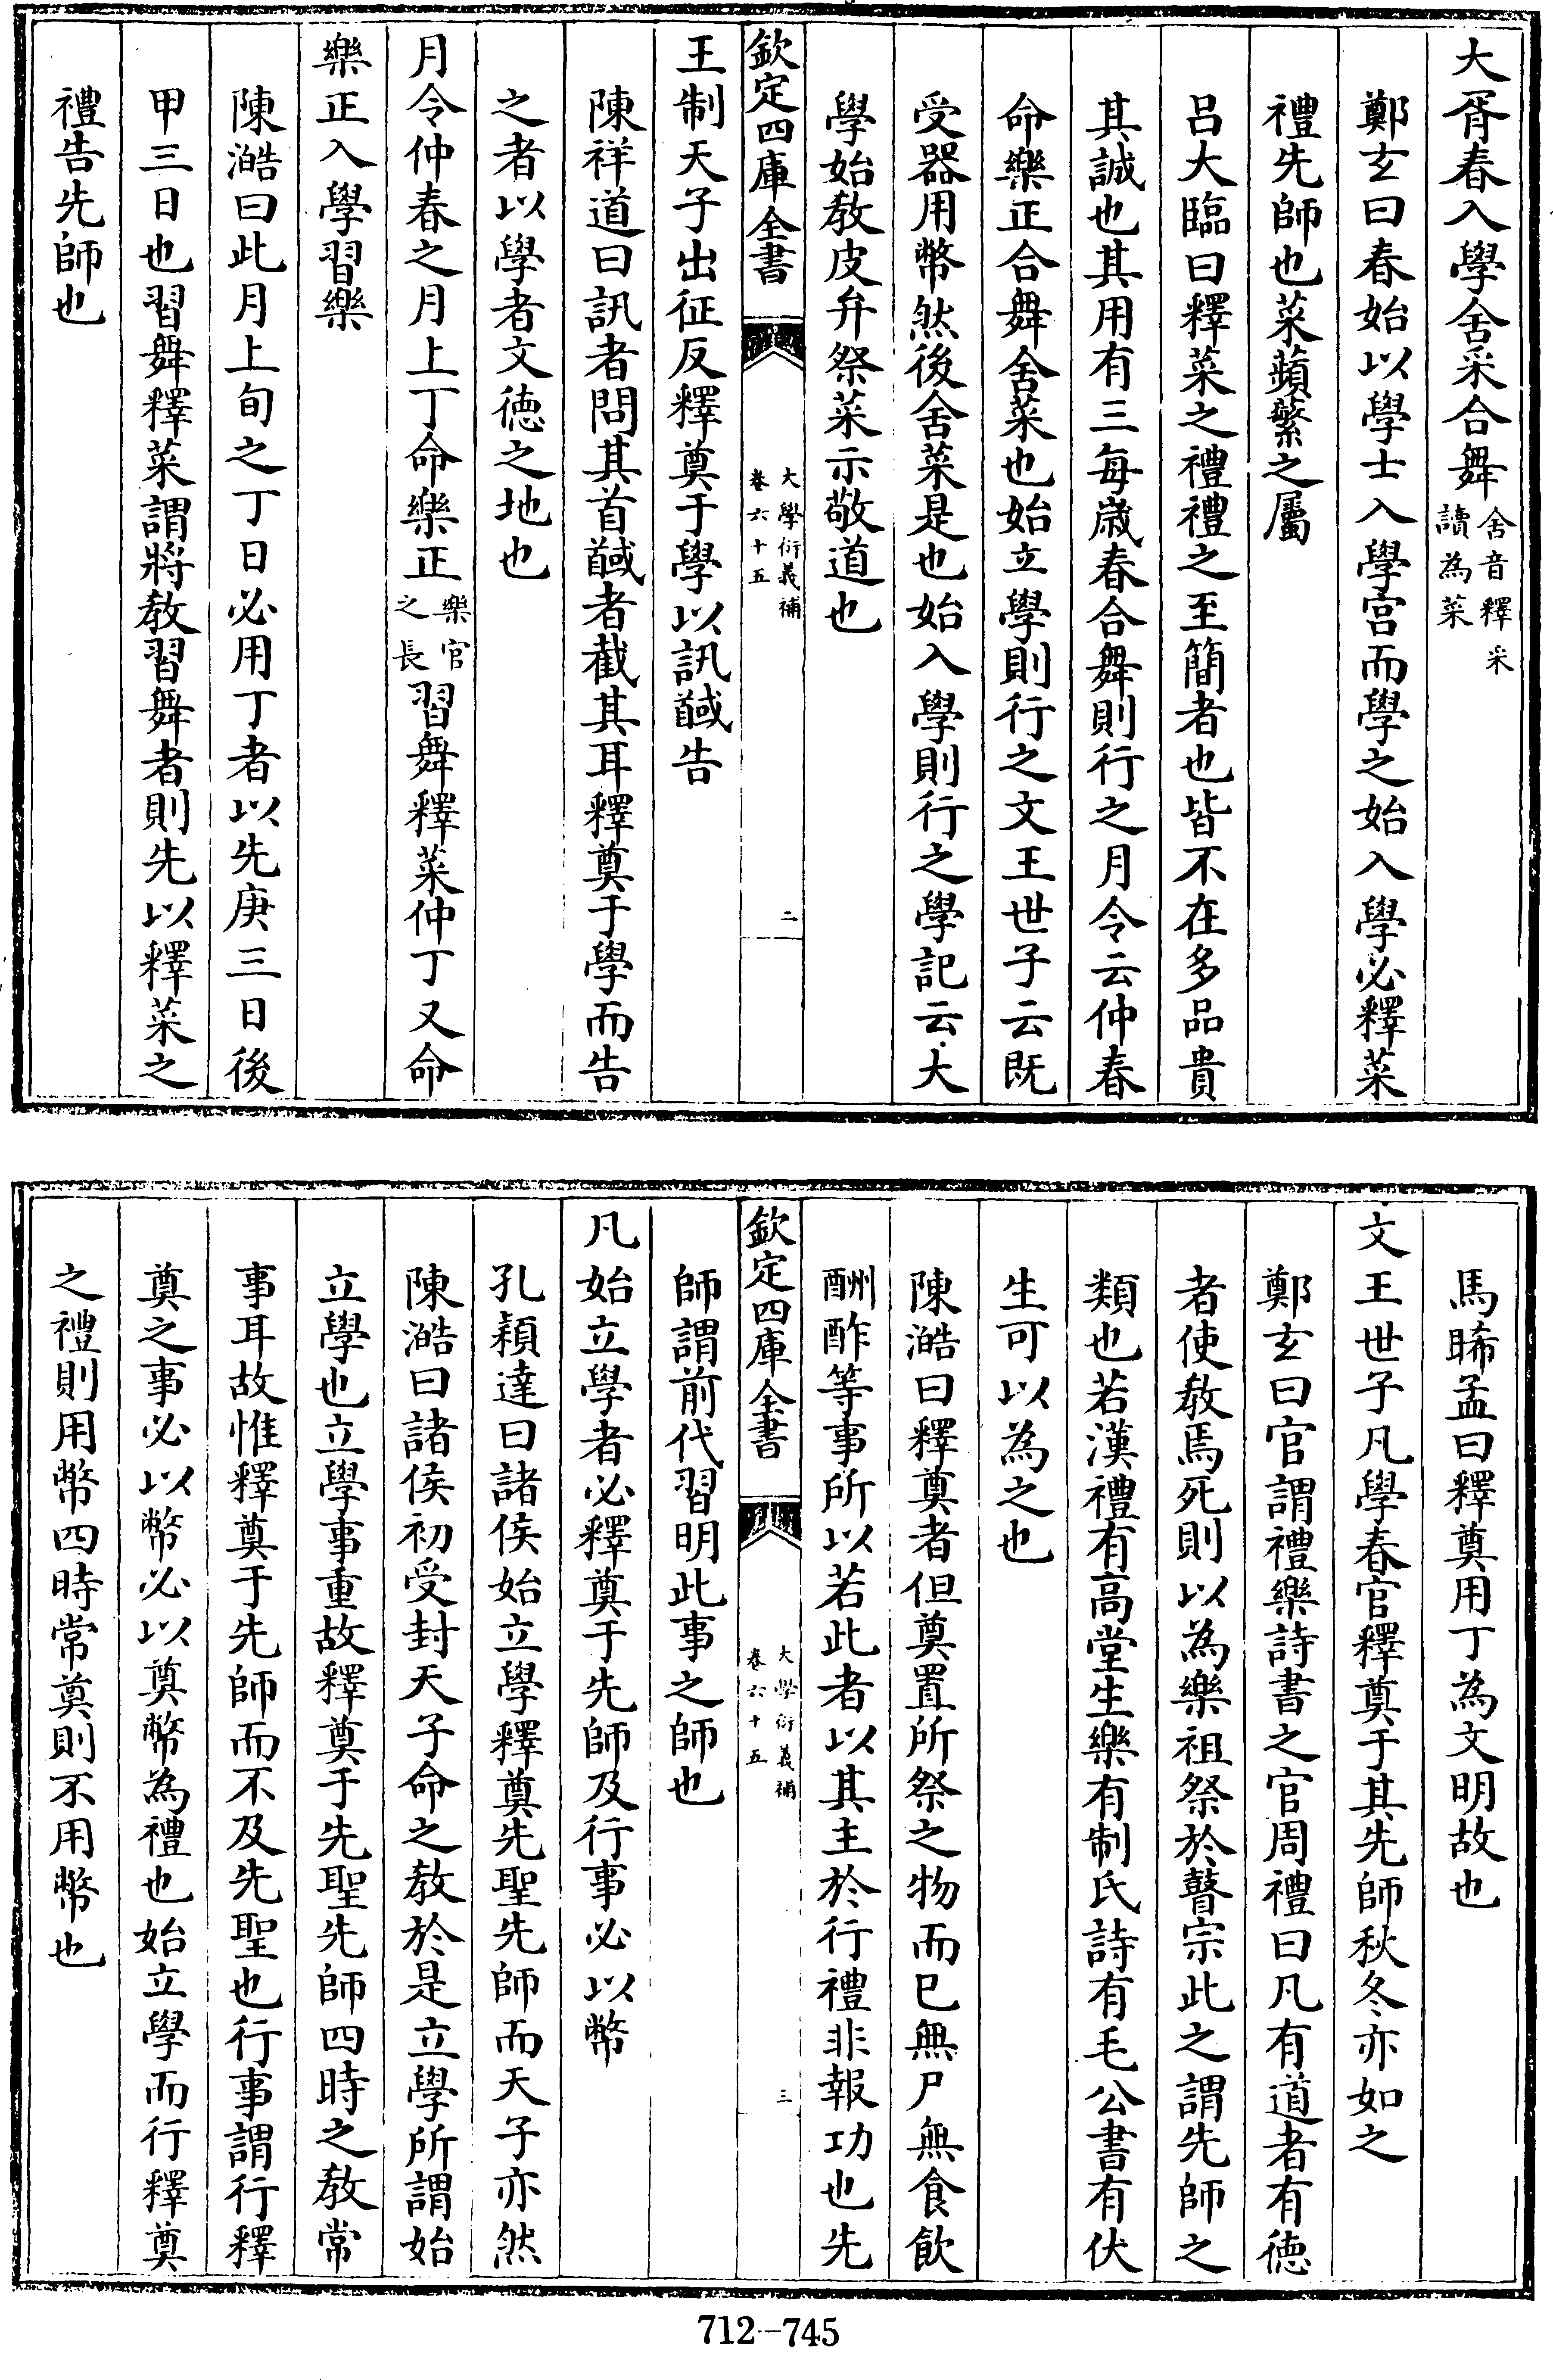 大胥春入學舍采合舞舍音釋采讀為菜
鄭玄曰春始以學士入學宫而學之始入學必釋菜
禮先師也菜蘋蘩之屬
吕大臨曰釋菜之禮禮之至簡者也皆不在多品貴
其誠也其用有三每嵗春合舞則行之月令云仲春
命樂正合舞舍菜也始立學則行之文王世子云既
受器用幣然後舍菜是也始入學則行之學記云大
學始敎皮弁祭菜示敬道也
欽定四庫全書
大學衍義補
卷六十五
二
王制天子出征反釋奠于學以訊馘告
陳祥道曰訊者問其首馘者截其耳釋奠于學而告
之者以學者文徳之地也
月令仲春之月上丁命樂正樂官之長習舞釋菜仲丁又命
樂正入學習樂
陳澔曰此月上旬之丁日必用丁者以先庚三日後
甲三日也習舞釋菜謂將敎習舞者則先以釋菜之
禮告先師也
馬晞孟曰釋奠用丁為文明故也
文王世子凡學春官釋奠于其先師秋冬亦如之
鄭玄曰官謂禮樂詩書之官周禮曰凡有道者有徳
者使敎焉死則以為樂祖祭於瞽宗此之謂先師之
類也若漢禮有高堂生樂有制氏詩有毛公書有伏
生可以為之也
陳澔曰釋奠者但奠置所祭之物而已無尸無食飲
酬酢等事所以若此者以其主於行禮非報功也先
欽定四庫全書
大學衍義補
卷六十五
三
師謂前代習明此事之師也
凡始立學者必釋奠于先師及行事必以幣
孔穎達曰諸侯始立學釋奠先聖先師而天子亦然
陳澔曰諸侯初受封天子命之敎於是立學所謂始
立學也立學事重故釋奠于先聖先師四時之敎常
事耳故惟釋奠于先師而不及先聖也行事謂行釋
奠之事必以幣必以奠幣為禮也始立學而行釋奠
之禮則用幣四時常奠則不用幣也
712-745